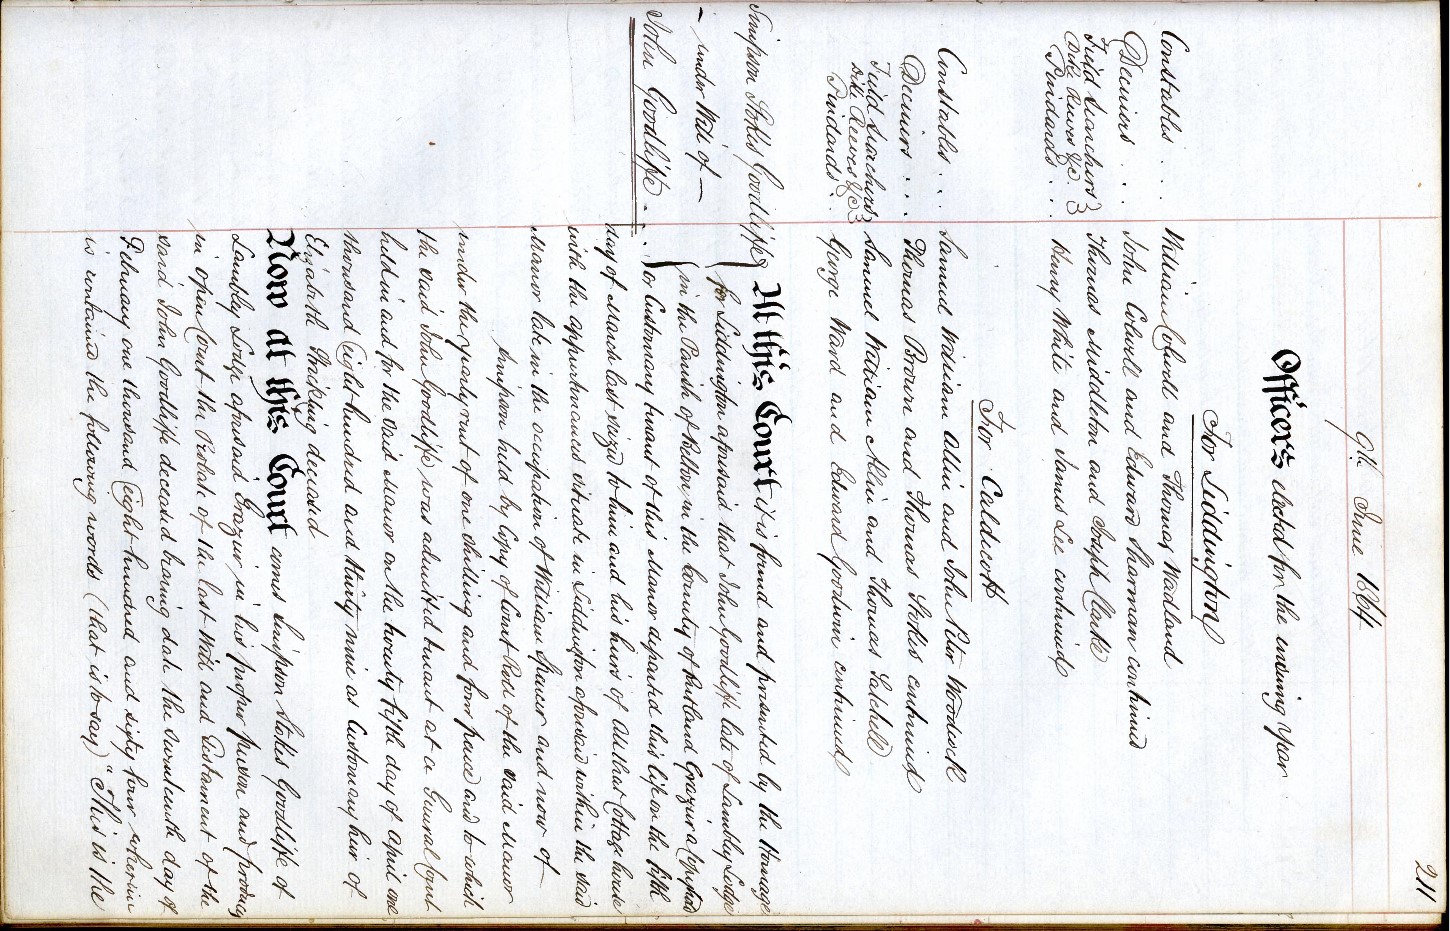 211
9th June 1864
Officers elected for the ensuing Year
For Liddington
Constables . . . William Chenll and Thomas Wadland
Deciners . . . John Colwell and Edward Thorman continued
Field Searchers } Thomas Middleton and Joseph Clarke
Dike Reeves &c }
Pindards . . . Henry White and James Lee continued
For Caldecott
Constables . . . Samuel William Allin and John Peter Woodcock
Deciners . . . . Thomas Brown and Thomas Stokes continued
Field Searchers } Samuel William Allin and Thomas Satchell
Dike Reeves &c }
Pindards . . George Ward and Edward Goodwin continued
Simpson Stokes Goodliffe
— under Will of —
John Goodliffe . . . .
At this Court it is found and presented by the Homage
for Liddington aforesaid that John Goodliffe late of Lambley Lodge
in the Parish of Belton in the County of Rutland Grazier a Copyhold
or Customary tenant of this Manor departed this life on the fifth
day of March last seized to him and his heirs of All that Cottage house
with the appurtenances situate in Liddington aforesaid within the said
Manor late in the occupation of William and now of
Simpson held by Copy of Court Roll of the said Manor
under the yearly rent of one shilling and four pence and to which
the said John Goodliffe was admitted tenant at a General Court
held in and for the said Manor on the twenty fifth day of April one
thousand Eight hundred and thirty nine as Customary heir of
Elizabeth Stackling deceased
Now at this Court comes Simpson Stokes Goodliffe of
Lambley Lodge aforesaid Grazier in his proper person and produces
in open Court the Probate of the last Will and Testament of the
said John Goodliffe deceased bearing date the seventeenth day of
February one thousand Eight hundred and sixty four wherein
is contained the following words (that is to say) "This is the